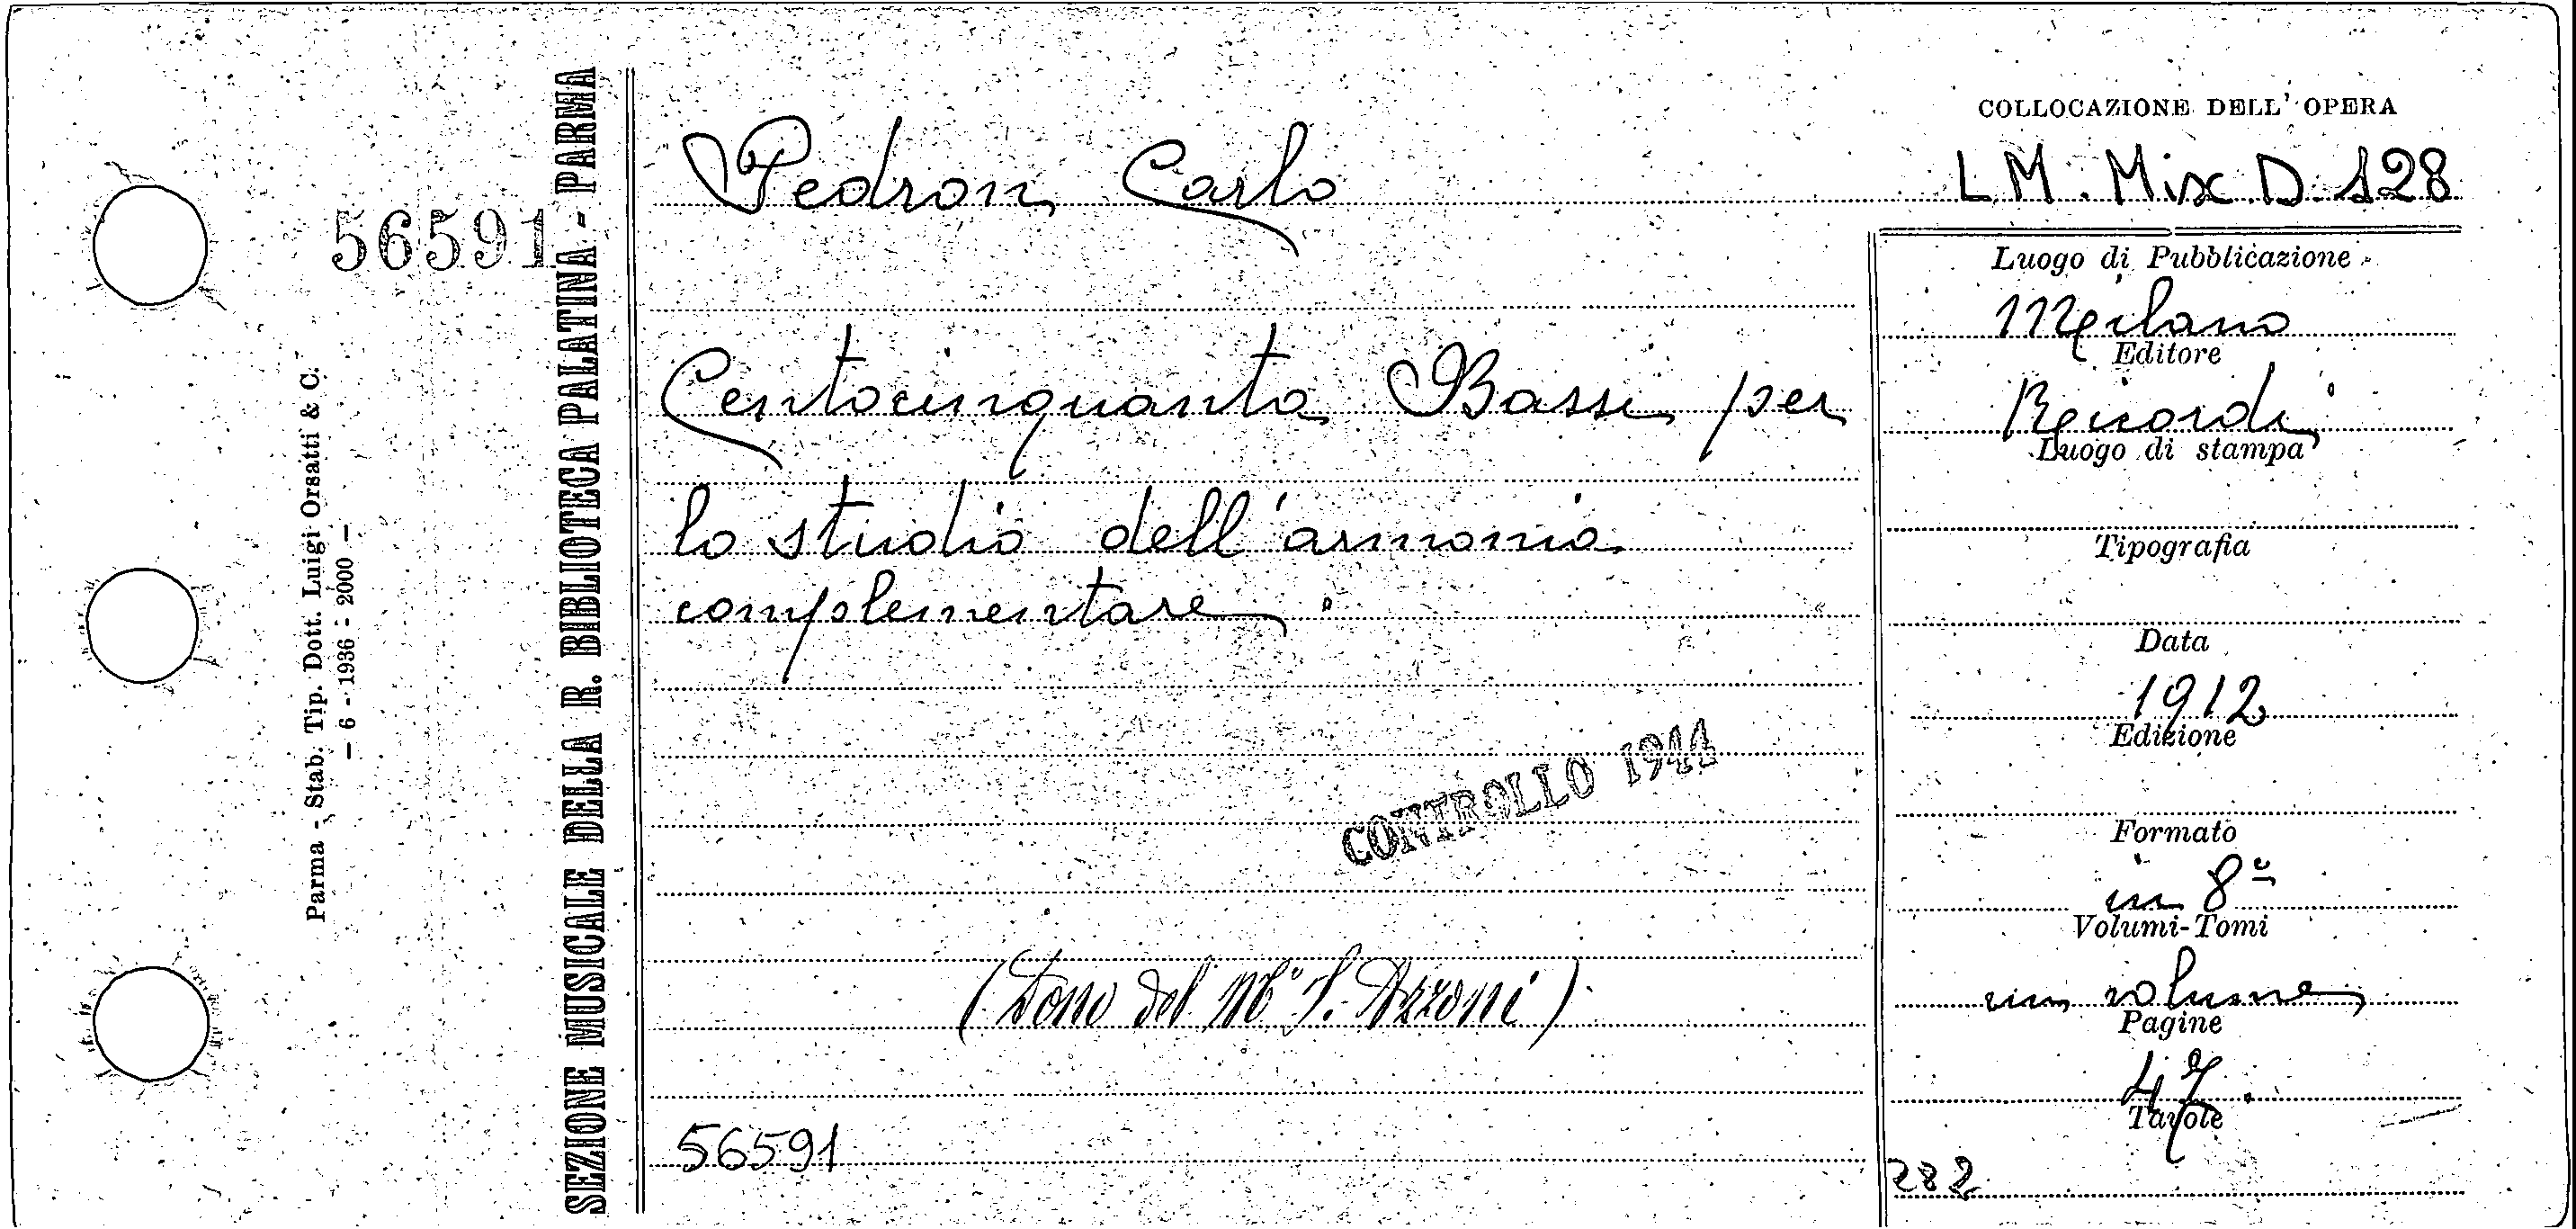 56591
Parma - Stab. Tip. Dott. Luigi Orsatti & C.
— 6 - 1936 - 2000 —
SEZIONE MUSICALE DELLA R. BIBLIOTECA PALATINA - PARMA
Pedron Carlo
Centocinquanta Bassi per
lo studio dell'armonia
complementare.
CONTROLLO 1944
(Dono del Mº S. Azzoni)
56591
COLLOCAZIONE DELL' OPERA
LM. Mix D. 128
Luogo di Pubblicazione
Milano
Editore
Ricordi
Luogo di stampa
Tipografia
Data
1912
Edizione
Formato
in 8º
Volumi-Tomi
un volume
Pagine
47.
Tavole
282